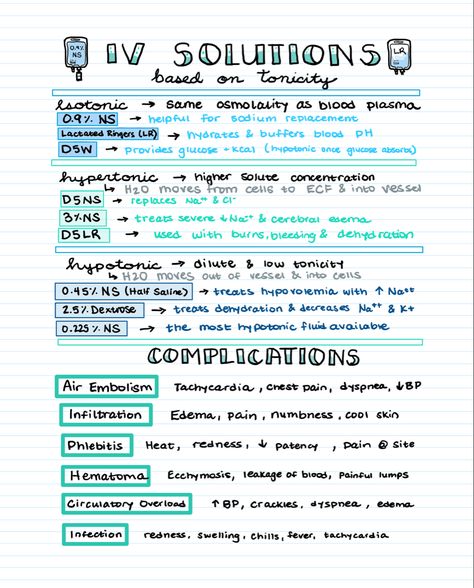 0.9% NS
IV SOLUTIONS
LR
based on tonicity
Isotonic → same osmolality as blood plasma
0.9% NS → helpful for sodium replacement
Lactated Ringers (LR) → hydrates & buffers blood pH
D5W → provides glucose + kcal (hypotonic once glucose absorbs)
hypertonic → higher solute concentration
↳ H2O moves from cells to ECF & into vessel
D5NS → replaces Na++ & Cl-
3% NS → treats severe ↓Na++ & cerebral edema
D5LR → used with burns, bleeding & dehydration
hypotonic → dilute & low tonicity
↳ H2O moves out of vessel & into cells
0.45% NS (Half Saline) → treats hypovolemia with ↑ Na++
2.5% Dextrose → treats dehydration & decreases Na++ & K+
0.225% NS → the most hypotonic fluid available
COMPLICATIONS
Air Embolism Tachycardia, chest pain, dyspnea, ↓BP
Infiltration Edema, pain, numbness, cool skin
Phlebitis Heat, redness, ↓ patency, pain @ site
Hematoma Ecchymosis, leakage of blood, painful lumps
Circulatory Overload ↑BP, crackles, dyspnea, edema
Infection redness, swelling, chills, fever, tachycardia